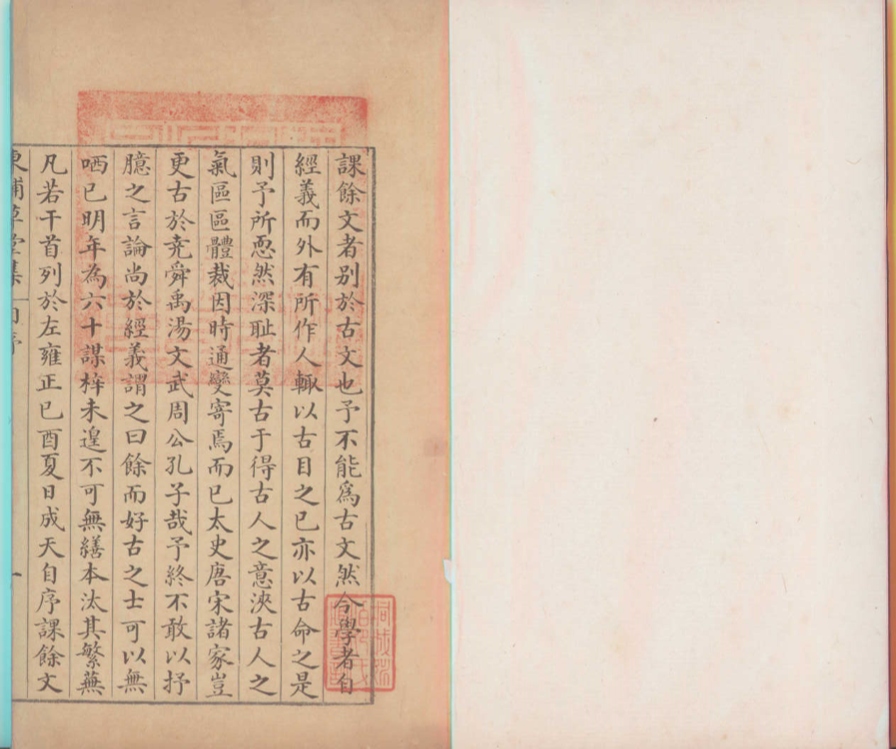 課餘文者别於古文也予不能爲古文然今學者自
經義而外有所作人輙以古目之已亦以古命之是
則予所恧然深耻者莫古于得古人之意浹古人之
氣區區體裁因時通變寄焉而已太史唐宋諸家豈
更古於尭舜禹湯文武周公孔子哉予終不敢以抒
臆之言論尚於經義謂之曰餘而好古之士可以無
哂已明年為六十謀梓未遑不可無繕本汰其繁蕪
凡若干首列於左雍正己酉夏日成天自序課餘文
草堂集
一